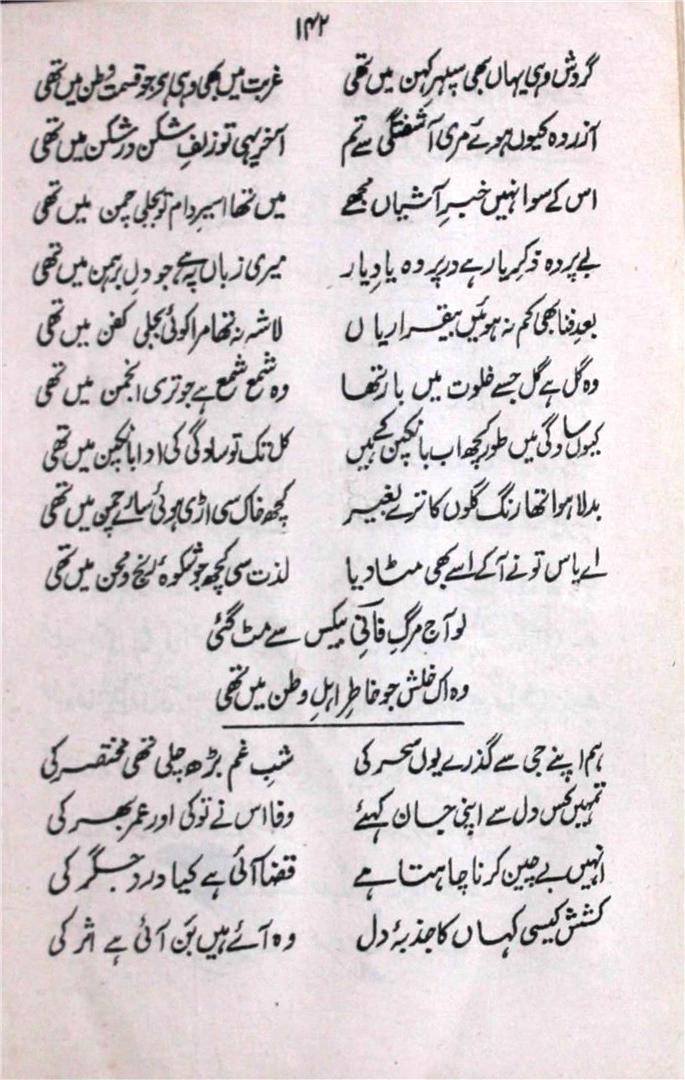 ۱۴۲
گردش وہی یہاں بھی سپہرِ کہن میں تھی غربت میں بھی وہی ہوئی جو قسمت وطن میں تھی
آزردہ کیوں ہوئے مری آشفتگی سے تم آخر یہی تو زلفِ شکن در شکن میں تھی
اس کے سوا نہیں خبرِ آشیاں مجھے میں تھا اسیرِ دام تو بجلی چمن میں تھی
بے پردہ ذکرِ یار ہے در پردہ یادِ یار میری زباں پہ ہے جو دلِ برہمن میں تھی
بعدِ فنا بھی کم نہ ہوئیں بیقراریاں لاشہ نہ تھا مرا کوئی بجلی کفن میں تھی
وہ گل ہے گل جسے خلوت میں بار تھا وہ شمع شمع ہے جو تری انجمن میں تھی
کیوں سادگی میں طور کچھ اب بانکپن کے ہیں کل تک تو سادگی کی ادا بانکپن میں تھی
بدلا ہوا تھا رنگ گلوں کا ترے بغیر کچھ خاک سی اڑی ہوئی سارے چمن میں تھی
اے یاس تو نے آ کے اسے بھی مٹا دیا لذت سی کچھ جو شکوۂ رنج و محن میں تھی
لو آج مرگِ فانیِ بیکس سے مٹ گئی
وہ اک خلش جو خاطرِ اہلِ وطن میں تھی
ہم اپنے جی سے گذرے یوں سحر کی شبِ غم بڑھ چلی تھی مختصر کی
تمہیں کس دل سے اپنی جان کہئے وفا اس نے تو کی اور عمر بھر کی
انہیں بے چین کرنا چاہتا ہے قضا آئی ہے کیا دردِ جگر کی
کشش کیسی کہاں کا جذبۂ دل وہ آئے ہیں بَن آئی ہے اثر کی